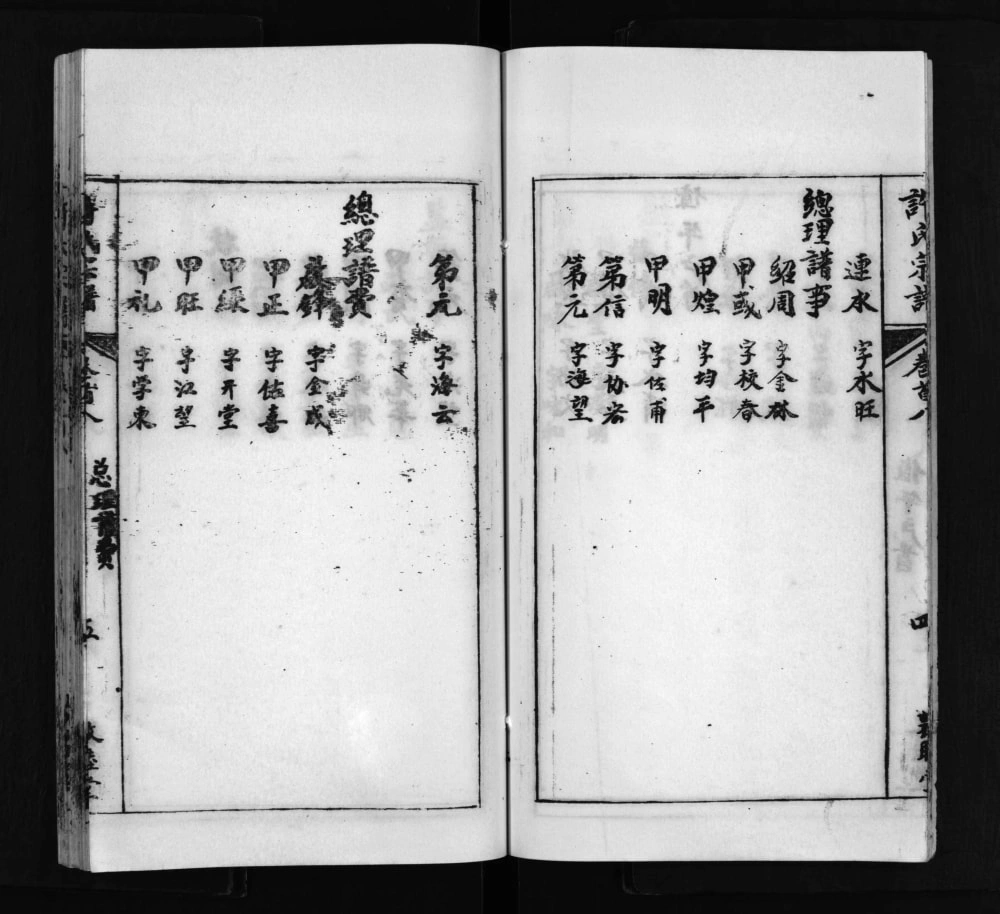 許氏宗譜 卷首八 四
連水 字水旺
總理譜事
紹周 字金林
甲或 字校春
甲煌 字均平
甲明 字佐甫
第信 字协容
第元 字海望
第元 字海云
總理譜費
字金成
甲正 字佐喜
甲綏 字开堂
甲旺 字江望
甲礼 字学東
总理譜費 五 敦睦堂